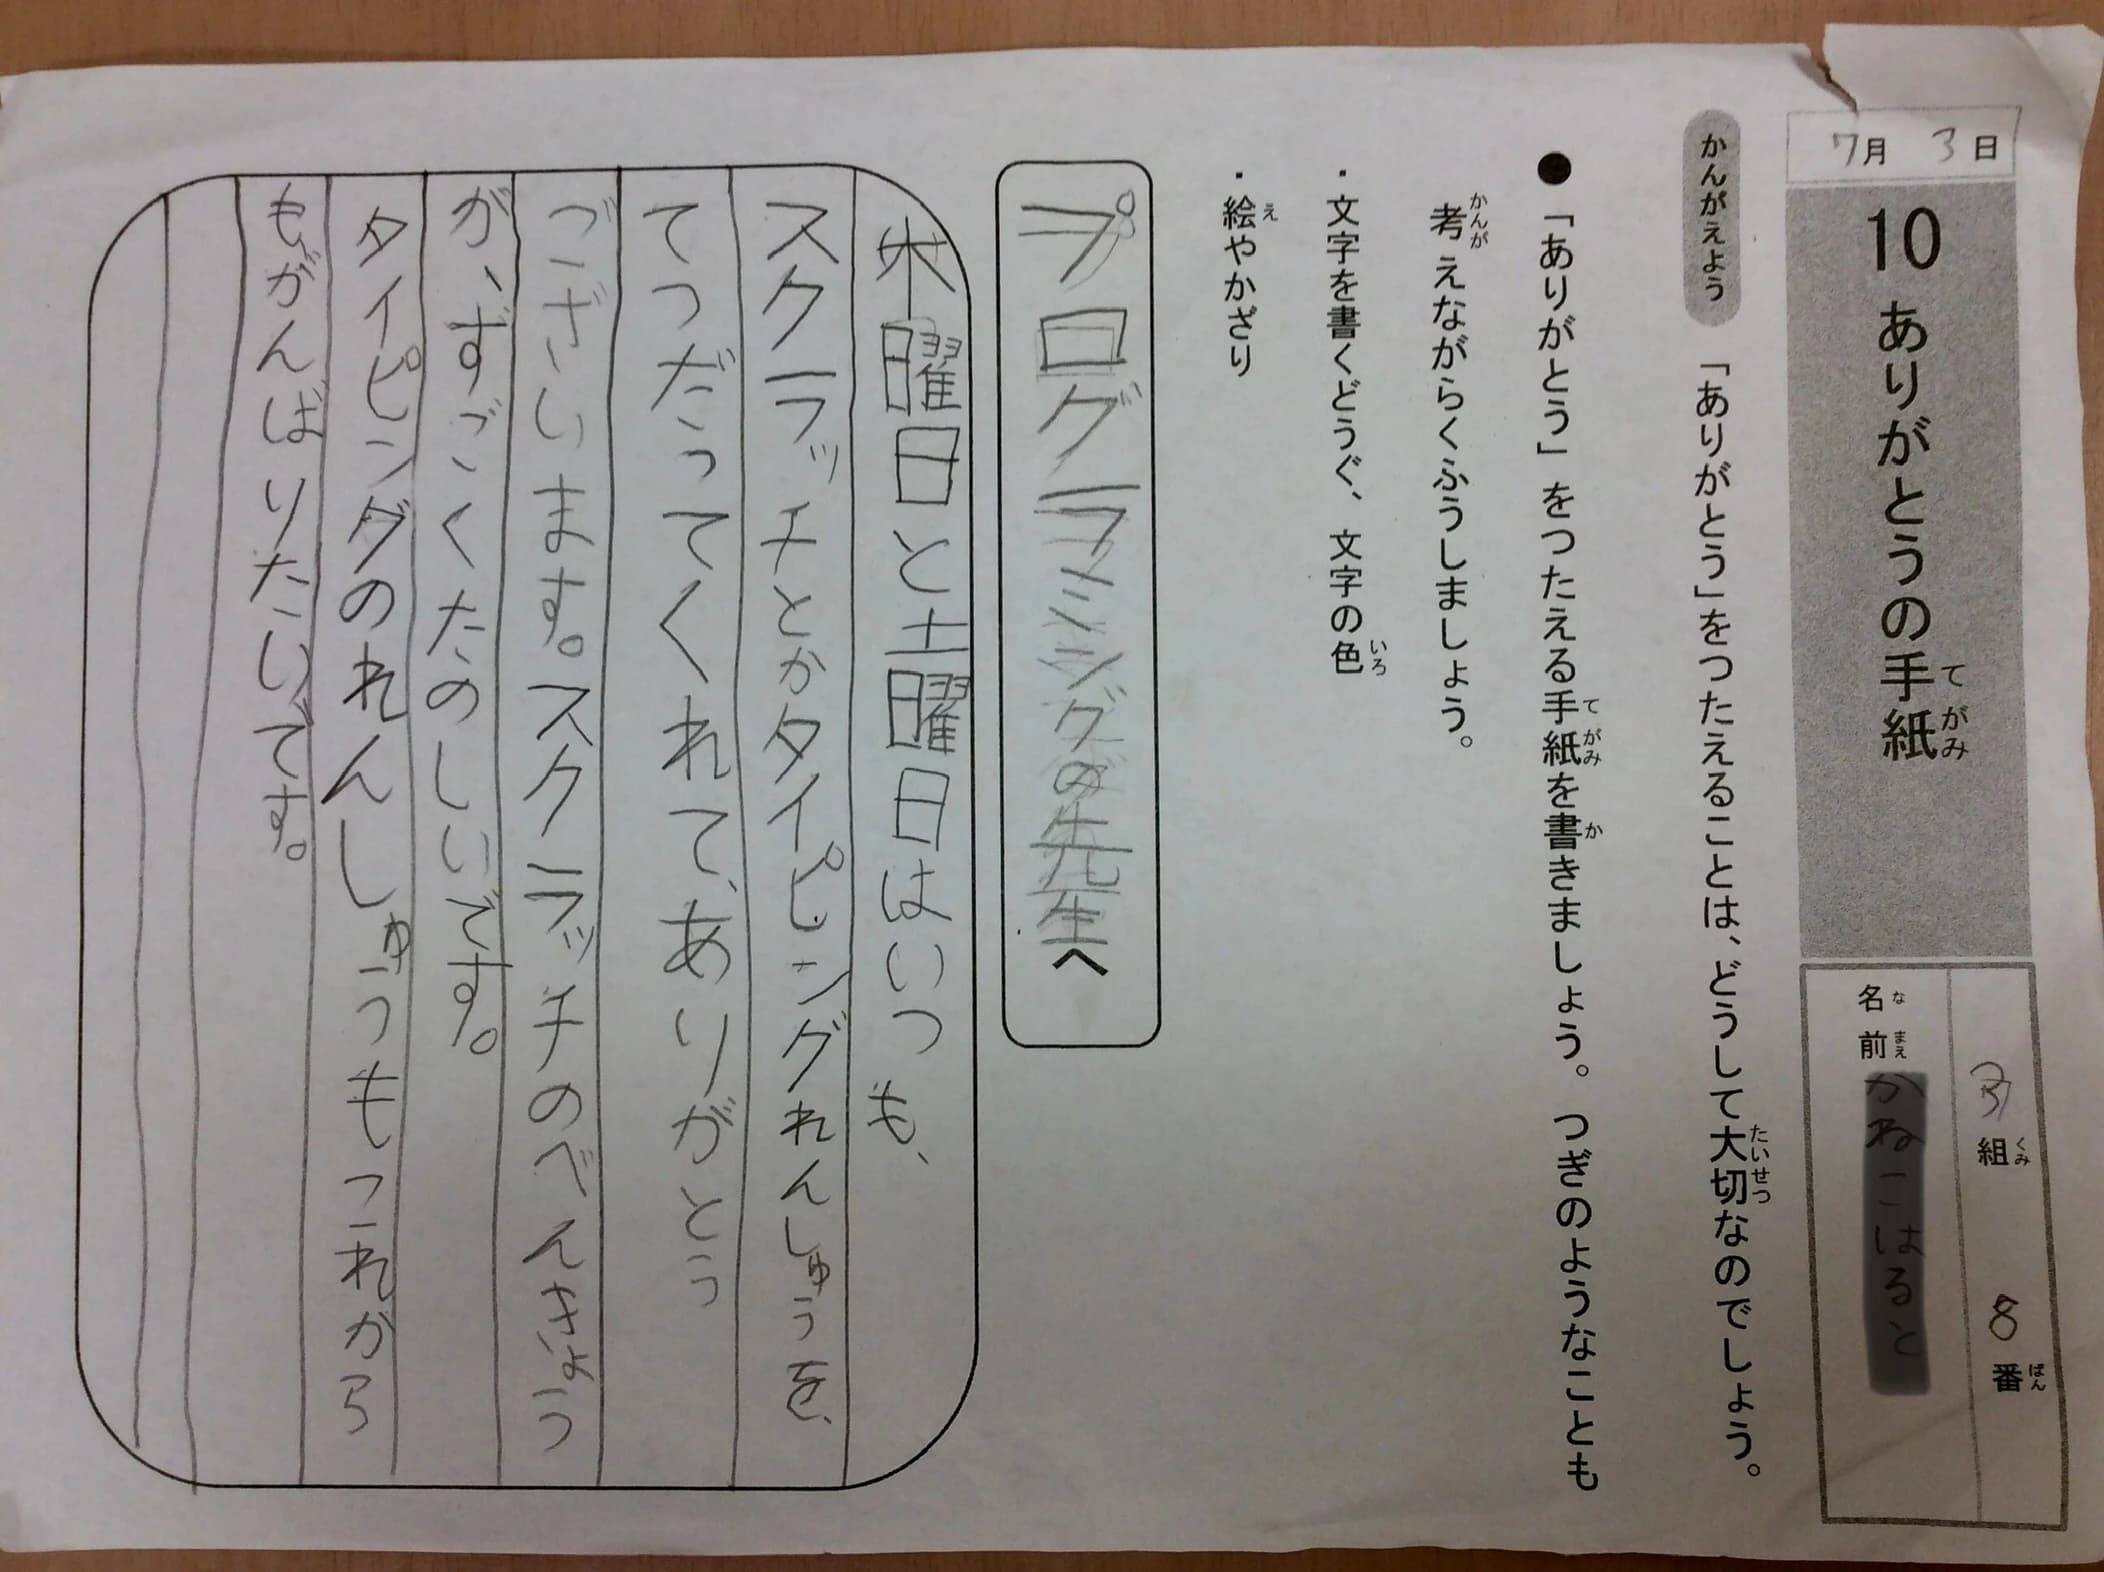 7月 3日
10 ありがとうの手紙
てがみ
3組
くみ
8番
ばん
名前
なまえ
かんがえよう
「ありがとう」をつたえることは、どうして大切なのでしょう。
たいせつ
●「ありがとう」をつたえる手紙を書きましょう。つぎのようなことも
てがみ か
考えながらくふうしましょう。
かんが
・文字を書くどうぐ、文字の色
いろ
・絵やかざり
え
プログラミングの先生へ
木曜日と土曜日はいつも、
スクラッチとかタイピングれんしゅうを、
てつだってくれて、ありがとう
ございます。スクラッチのべんきょう
が、すごくたのしいです。
タイピングのれんしゅうもつこれから
もがんばりたいです。